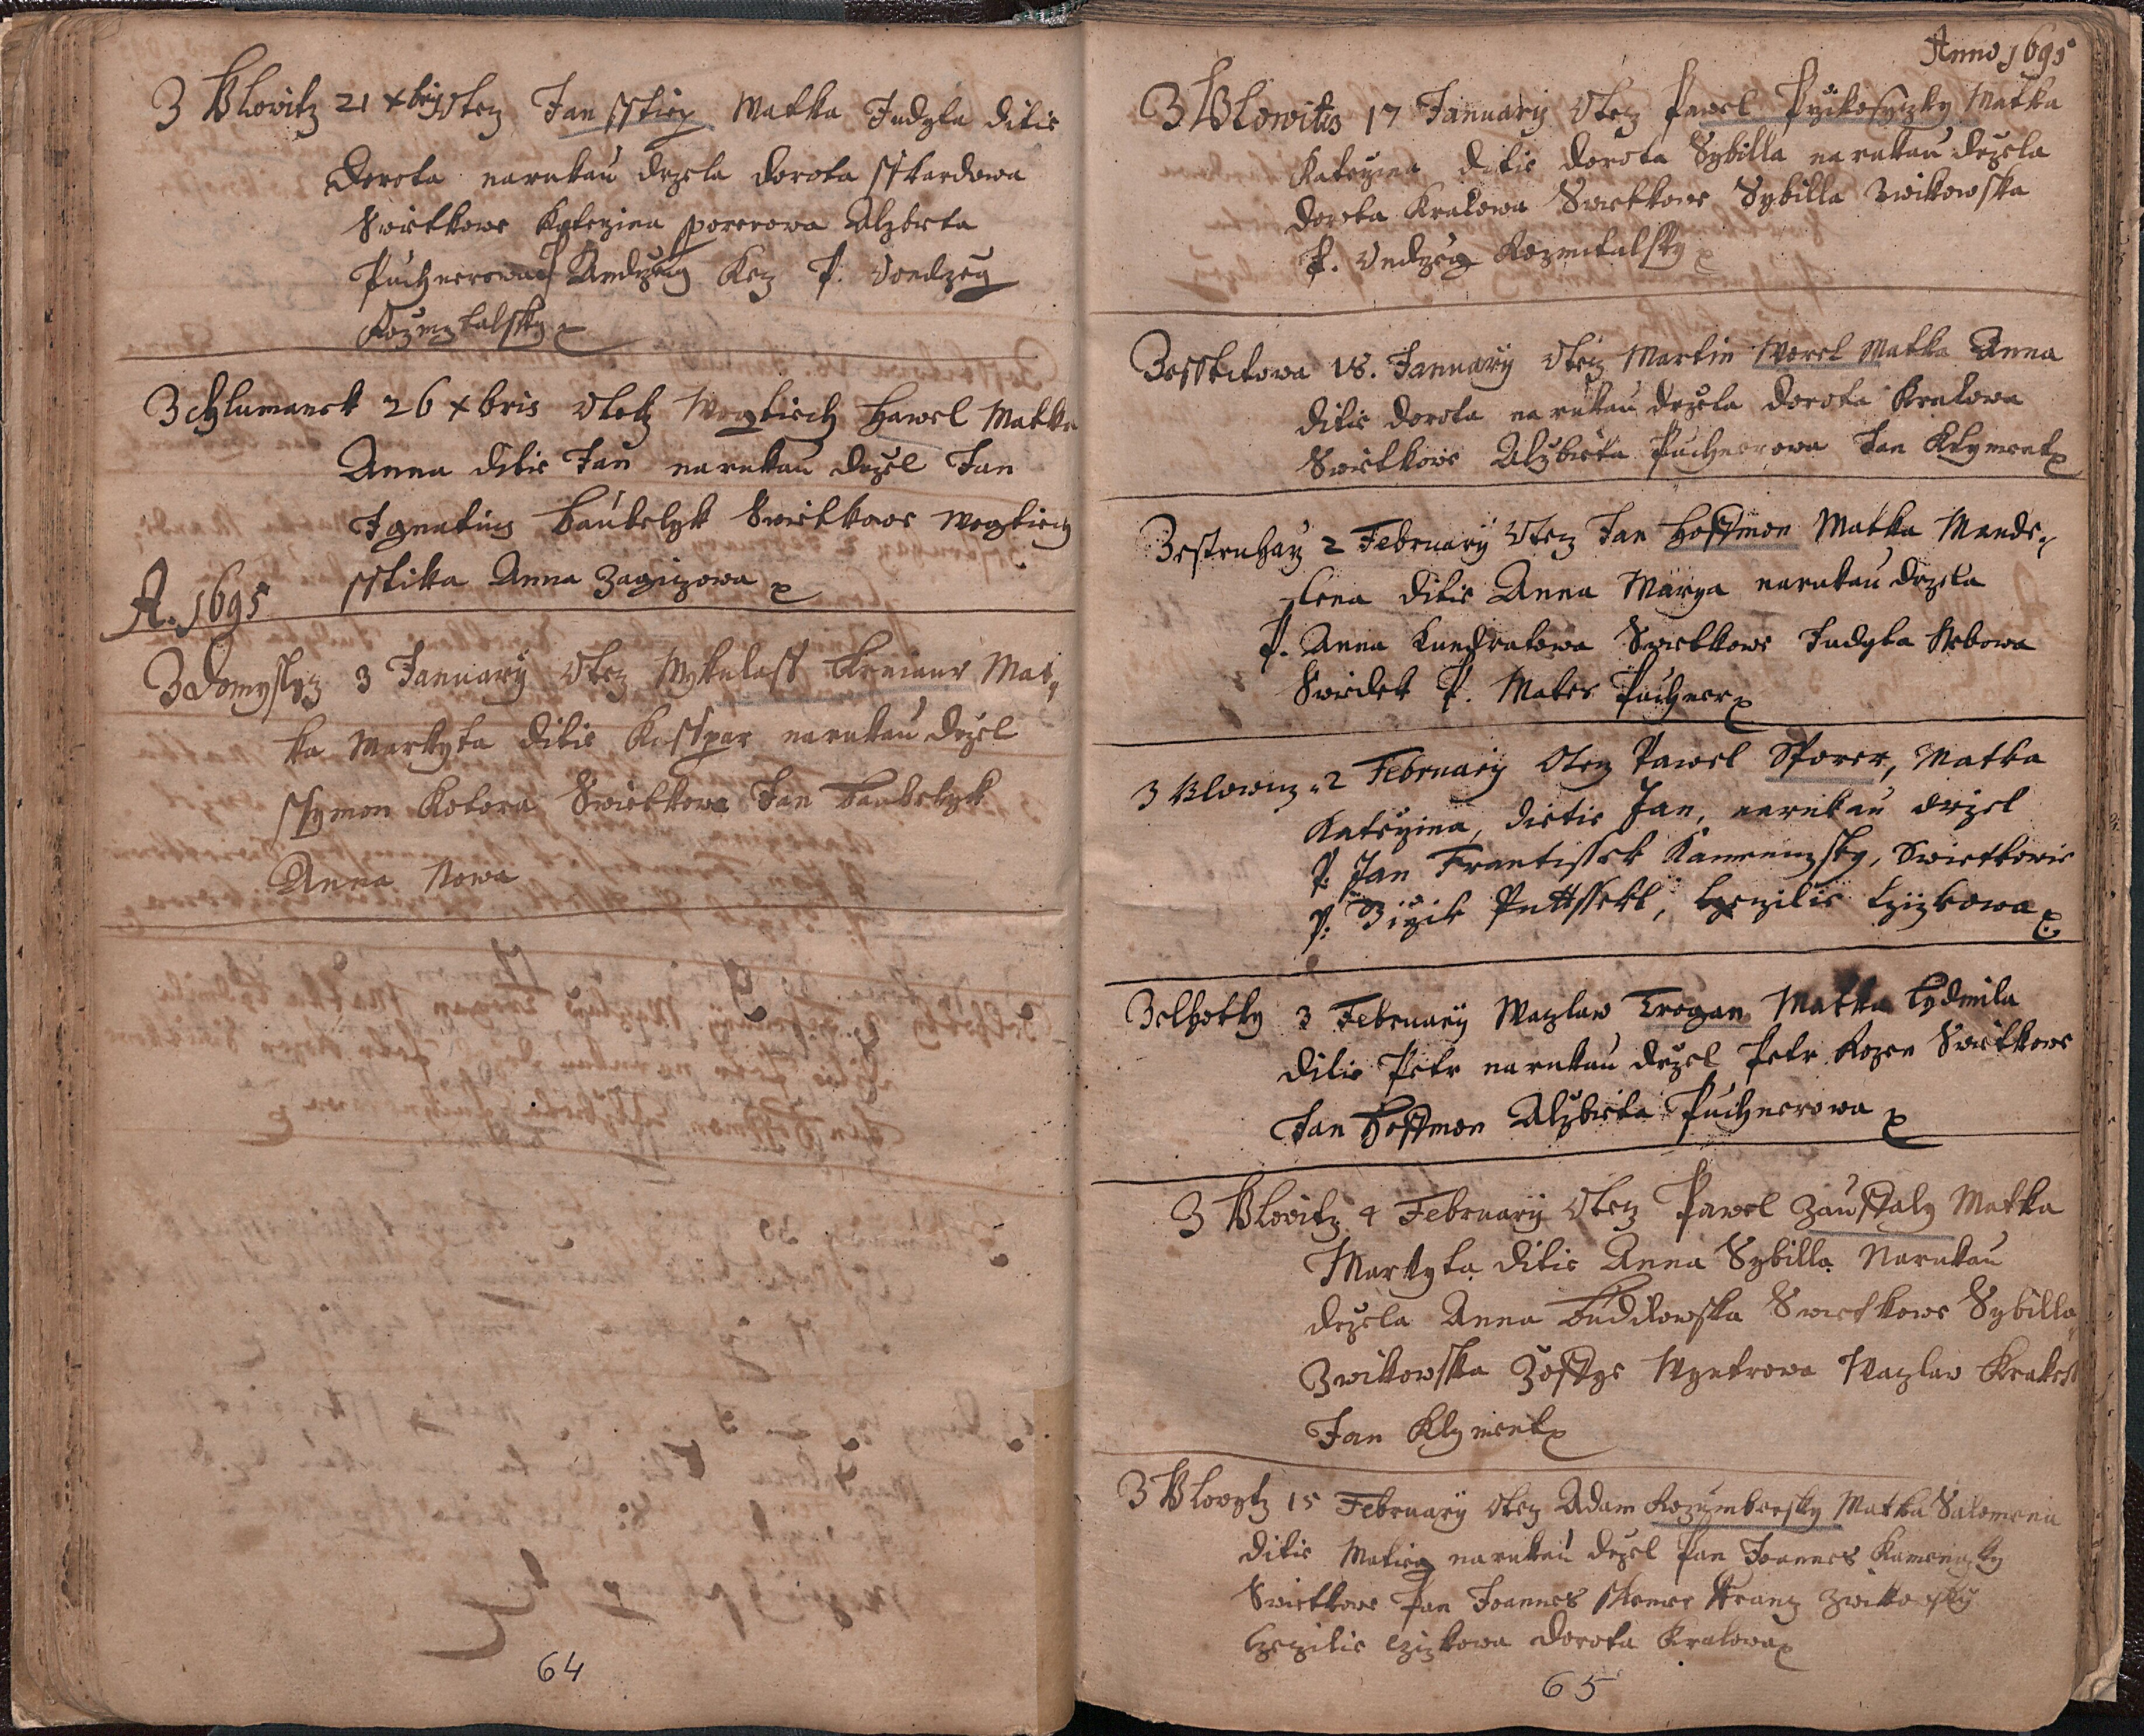 Z Blovitz 21 xbrij Otecz Jan sstiep Matka Judyta ditie
Dorota narukau drzela Dorota
Swietkowe Katerzina sporerowa Alzbieta
Puchnerowa Andrzeg P. Vondrzeg
Rozmtalsky
Z Chlumanek 26 xbris Otetz Wogtiech Hawel Matka
Anna ditie Jan narukau drzel Jan
Ignatius Baubelyk Swietkowe Wogtiech
Anna
A. 1695
Z Domyslycz 3 January Otecz Mykulass Matka
ka Markyta ditie Kasspar narukau drzel
ssymon Kotora Swietkowe Jan Baubelyk
Anna Nowa
64
Anno 1695
Z Blowitcz 17 January Otecz Pawel Matka
Katerzina ditie Dorota Sybilla narukau drzela
Dorota Kralowa Swietkowe Sybilla Zwikowska
P. Vndrzeg Rozmitalsky
Zesstitowa 18. January Otecz Martin Worel Matka Anna
ditie Dorota narukau drzela Dorota Kralowa
Swietkowe Alzbieta Puchnerowa Jan Klyment
2 February Otecz Jan Hoffmon Matka Mande,
lena ditie Anna Marya narukau drzela
P. Anna Kundratowa Swietkowe Judyta
Swiedek P. Mates Puchner
Z Blowicz 2 February Otecz Pawel Sporer, Matka
Katerzina, dietie Jan, narukau drzel
P: Jan Frantissek Kamenczsky, Swietkowie
P: Girzik, Czezilie Czizkowa
Zelhotky 3 February Waczlaw Trogan Matka Lydmila
ditie Petr narukau drzel Petr Kozen Swietkowe
Jan Hoffmon Alzbieta Puchnerowa
Z Blovitz 4 February Otecz Pawel Zaustaly Matka
Markyta ditie Anna Sybilla Narukau
drzela Anna Budilowska Swietkowe Sybilla
Zwikowska Zoffye Wyntrowa Waczlaw
Jan Klyment
Z Blovytz 15 February Otecz Adam Rozumbersky Matka Salomena
ditie Matieg narukau drzel Pan Joannes Kamenczky
Swietkowe Pan Joannes Franz Zwikowsky
Czezilie Czizkowa Dorota Kralowa
65